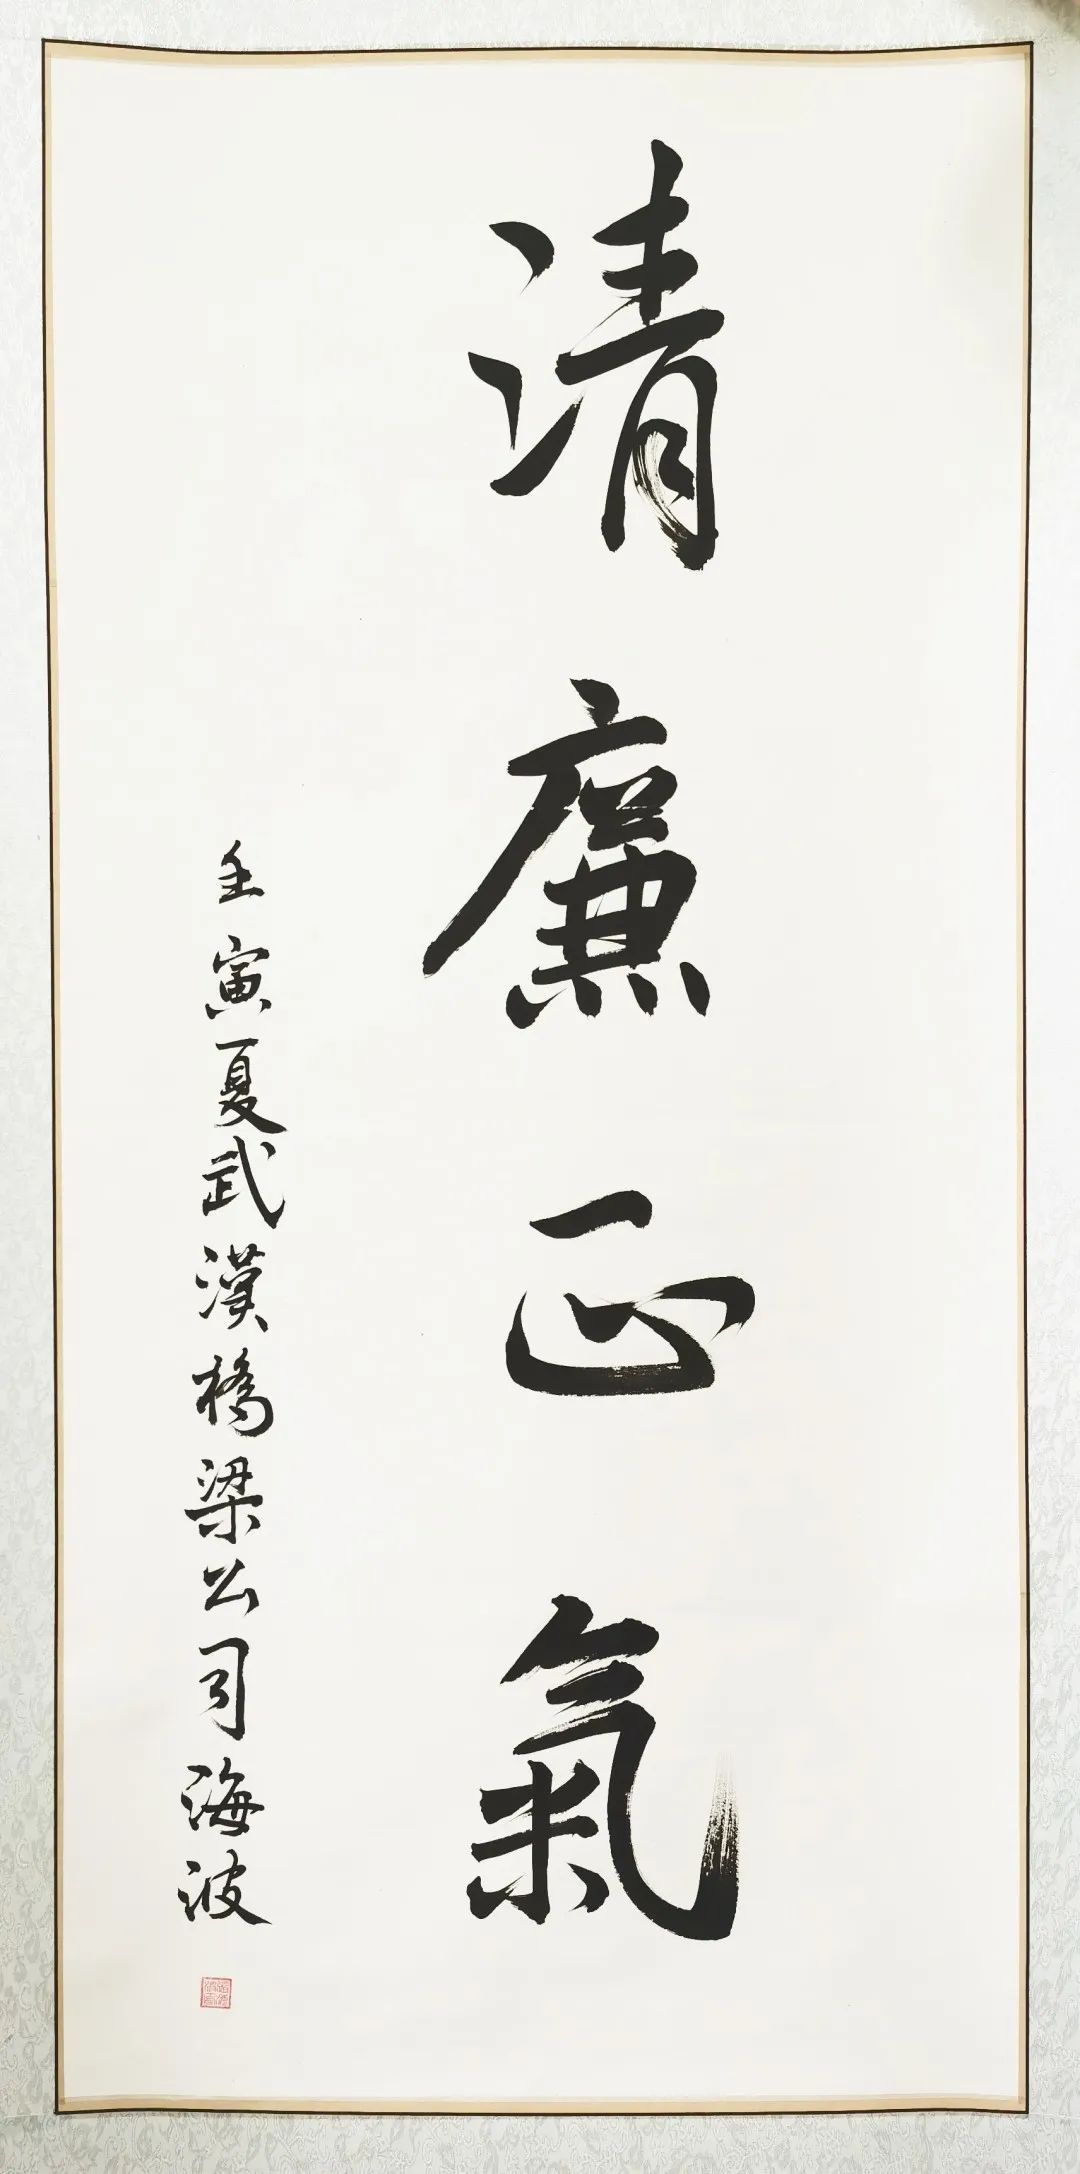 清廉正氣
壬寅夏武漢橋梁公司海波